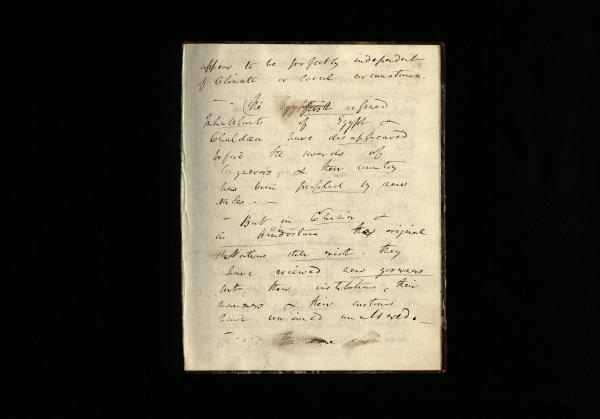 appear to be perfectly independent
of Climate or local circumstances.
- - (The first refined
Inhabitants of Egypt &
Chaldea have disappeared
before the swords of
Conquerors, & their country
has been peopled by new
races. -
- But in China &
in Hindostan the original
Nations still exist. they
have received new governors
but, their institutions, their
manners & their customs
have remained unaltered. -
the